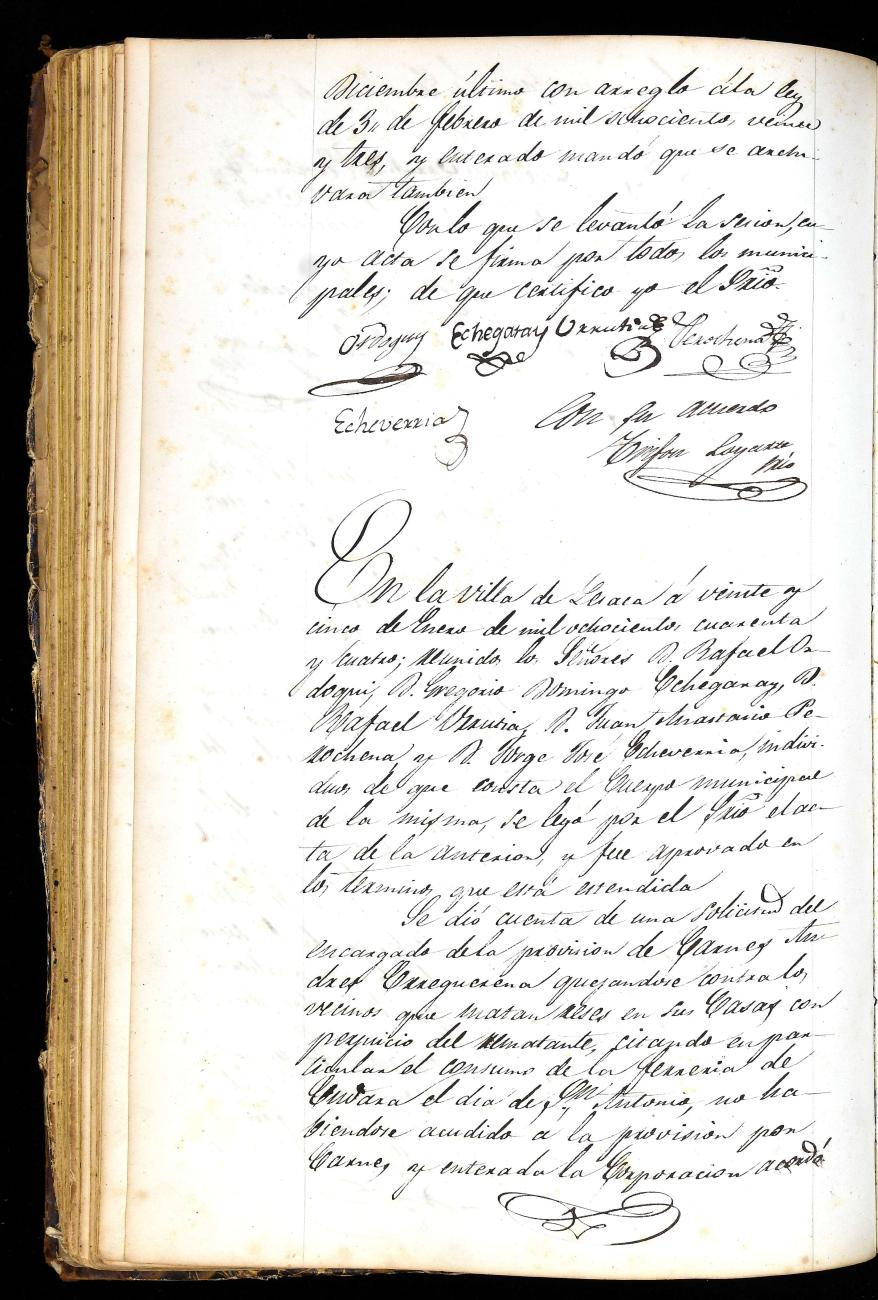 Diciembre último con arreglo á la ley
de 3 de febrero de mil ochociento, veinte
y tres, y enterado mandó que se archi-
vara tambien
Con lo que se levantó la sesion, cu-
yo acta se firma por todos los munici-
pales; de que certifico yo el Srio.
Ordoquy Echegaray Urrutia Perochena
Echeverria Con su acuerdo
Srio
En la villa de Lesaca á veinte y
cinco de Enero de mil ochociento, cuarenta
y cuatro; reunido los Señores D. Rafael Or-
doqui, D. Gregorio Domingo Echegaray, D.
Rafael Urrutia, D. Juan Anastasio Pe-
rochena, y D. Jorge José Echeverria, indivi-
duos de que consta el Cuerpo municipal
de la misma, se leyó por el Srio el ac-
ta de la anterior, y fue aprovado en
los terminos que está estendida
Se dió cuenta de una solicitud del
encargado de la provision de Carnes An-
dres Erreguerena quejandose contra los
vecinos que matan reses en sus Casas con
perjuicio del rematante, citando en par-
ticular el consumo de la ferreria de
el dia de Sn. Antonio, no ha-
biendose acudido a la provision por
Carnes y enterada la Corporacion acordó